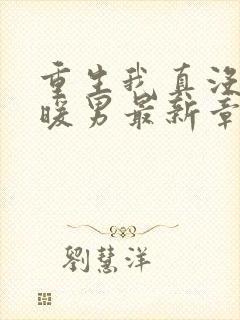 重生我真没
暖男最新章
劉慧洋